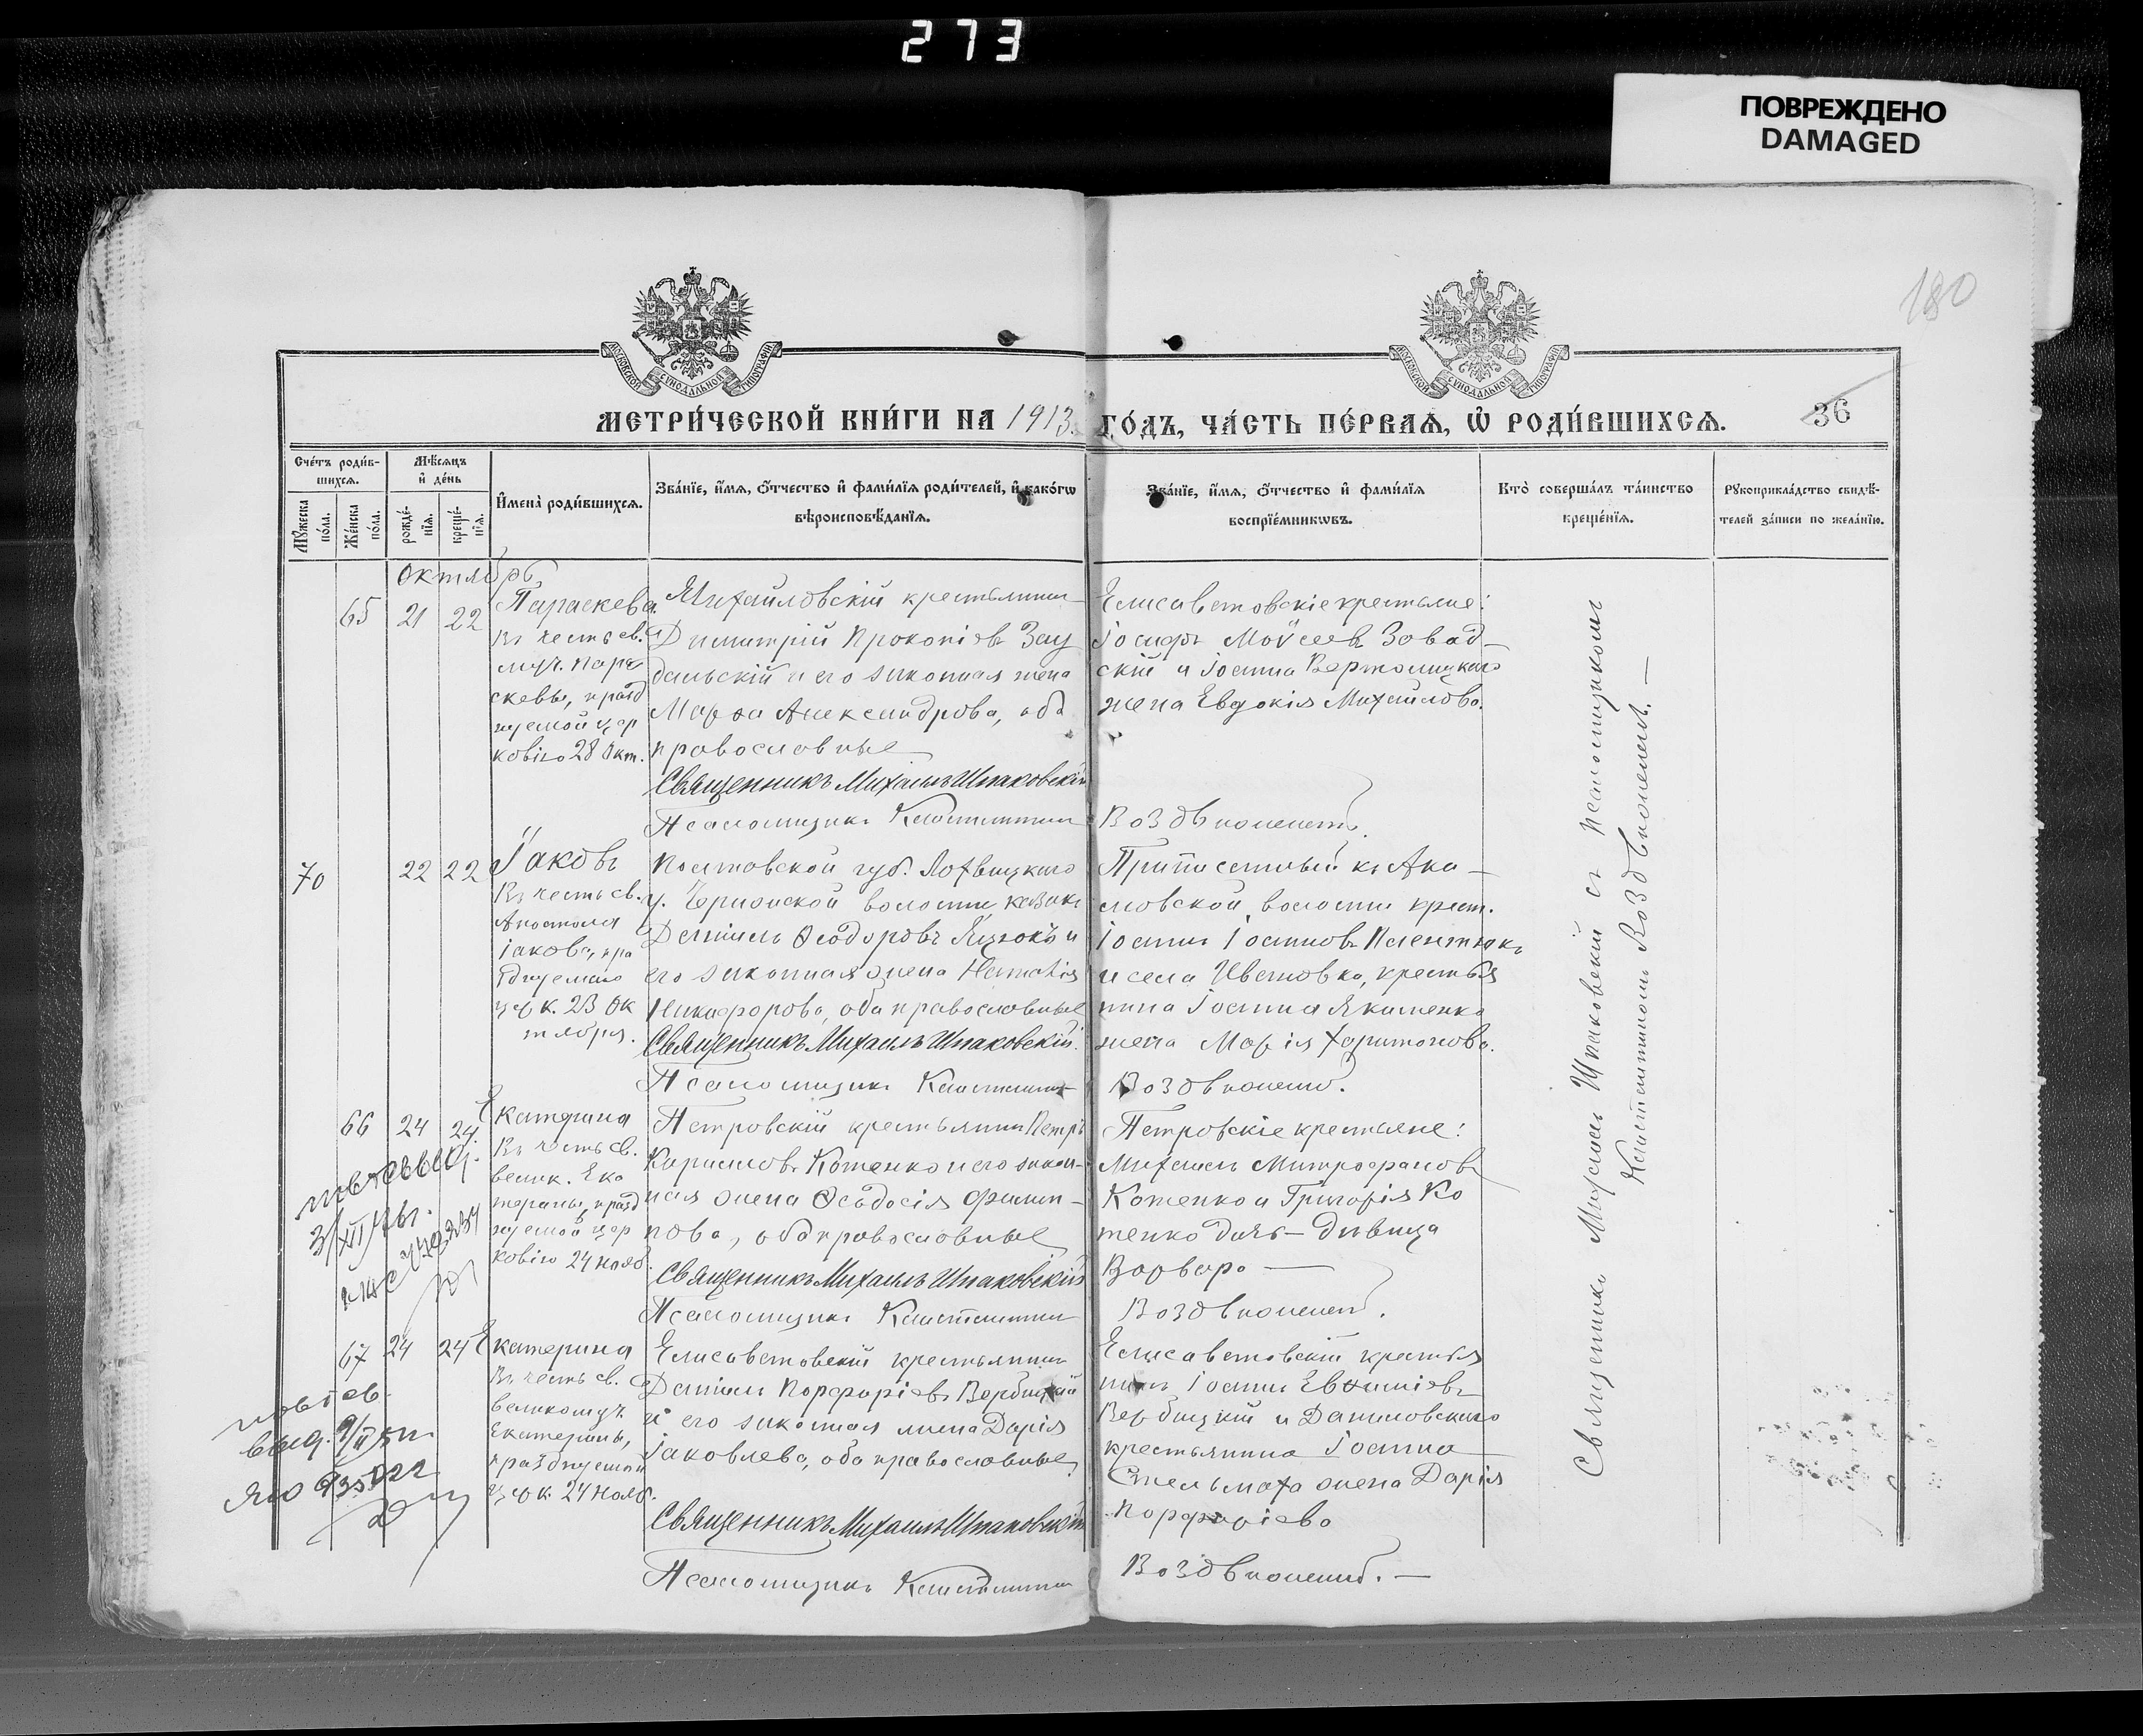 273
ПОВРЕЖДЕНО
DAMAGED
180
МОСКОВСКОЙ СѴНОДАЛЬНОЙ ТИПОГРАФІИ
МОСКОВСКОЙ СѴНОДАЛЬНОЙ ТИПОГРАФІИ
МЕТРИ́ЧЕСКОЙ КНИ́ГИ НА 1913 ГО́ДЪ, ЧА́СТЬ ПЕ́РВАЯ, Ѡ РОДИ́ВШИХСЯ.
36
Сче́тъ роди́в-
шихся.
Мѣ́сяцъ
и де́нь
Мꙋ́жеска по́ла.
Же́нска по́ла.
рожде́-нїя.
креще́-нїя.
Имена̀ роди́вшихся.
Зва́нїе, и́мя, ѻ́тчество и фами́лїя роди́телей, и како́гѡ
вѣроисповѣ́данїя.
Зва́нїе, и́мя, ѻ́тчество и фами́лїя
воспрїе́мникѡвъ.
Кто̀ соверша́лъ та́инство
креще́нїя.
Рꙋкоприкла́дство свидѣ́-
телей за́писи по жела́нїю.
Октябрь
65 21 22 Параскева
Въ честь св.
муч. Пара
скевы, празд
нуемой цер
ковію 28 Окт.
Михайловскій крестьянинъ
Димитрій Прокопіевъ
и его законная жена
Марѳа Александрова, оба
православные
Священникъ Михаилъ Шпаковскій
Псаломщикъ Константинъ
Елисаветовскіе крестьяне:
Іосифъ Моѵсеевъ Завад-
скій и Іоанна
жена Евдокія Михайлова.
Воздвиженскій.
70 22 22 Іаковъ
Въ честь св.
Апостола
Іакова, пра
зднуемаго
церк. 23 Ок
тября.
Полтавской губ. Лохвицкаго
у. волости, казакъ
Даніилъ Ѳеодоровъ и
его законная жена Наталія
Никифорова, оба православные
Священникъ Михаилъ Шпаковскій.
Псаломщикъ Константинъ
Приписанный къ Ана-
ньевской волости крест.
Іоаннъ Іоанновъ
и села Ивановка, крестья
нина Іоанна Якименко
жена Марія Харитонова.
Воздвиженскій.
66 24 24. Екатерина
Въ честь св.
велик. Ека
терины, празд
нуемой цер
ковію 24 нояб.
Петровскій крестьянинъ Петръ
Коженко и его закон-
ная жена Ѳеодосія Филип-
пова, оба православные
Священникъ Михаилъ Шпаковскій
Псаломщикъ Константинъ
Петровскіе крестьяне:
Михаилъ Митрофановъ
Коженко и Григорія Ко
женко дочь — дѣвица
Варвара —
Воздвиженскій.
67 24 24 Екатерина
Въ честь св.
великомуч.
Екатерины,
празднуемой
церк. 24 нояб.
Елисаветовскій крестьянинъ
Даніилъ Порфиріевъ Вербицкій
и его законная жена Дарія
Іаковлева, оба православные.
Священникъ Михаилъ Шпаковскій
Псаломщикъ Константинъ
Елисаветовскій крестья
нинъ Іоаннъ Евѳиміевъ
Вербицкій и Даниловскаго
крестьянина Іоанна
Стельмаха жена Дарія
Порфиріева
Воздвиженскій. —
Священникъ Михаилъ Шпаковскій съ псаломщикомъ
Константиномъ Воздвиженскимъ. —